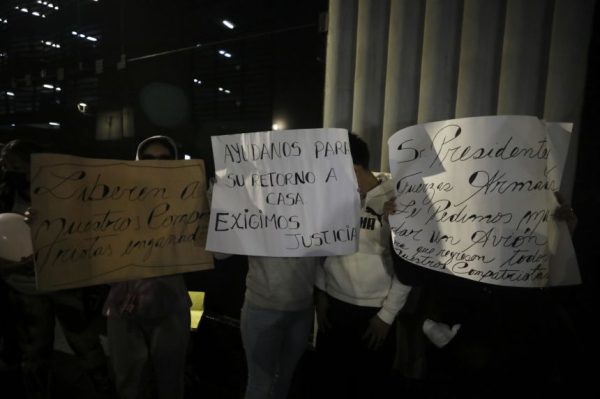 Liberen a
Nuestros Compa
triotas engañad
AYUDANOS PARA
SU RETORNO A
CASA
EXIGIMOS
JUSTICIA
Sr Presidente
Fuerzas Armas
Le Pedimos
dar un Avión
que regresen todos
nuestros Compatriotas